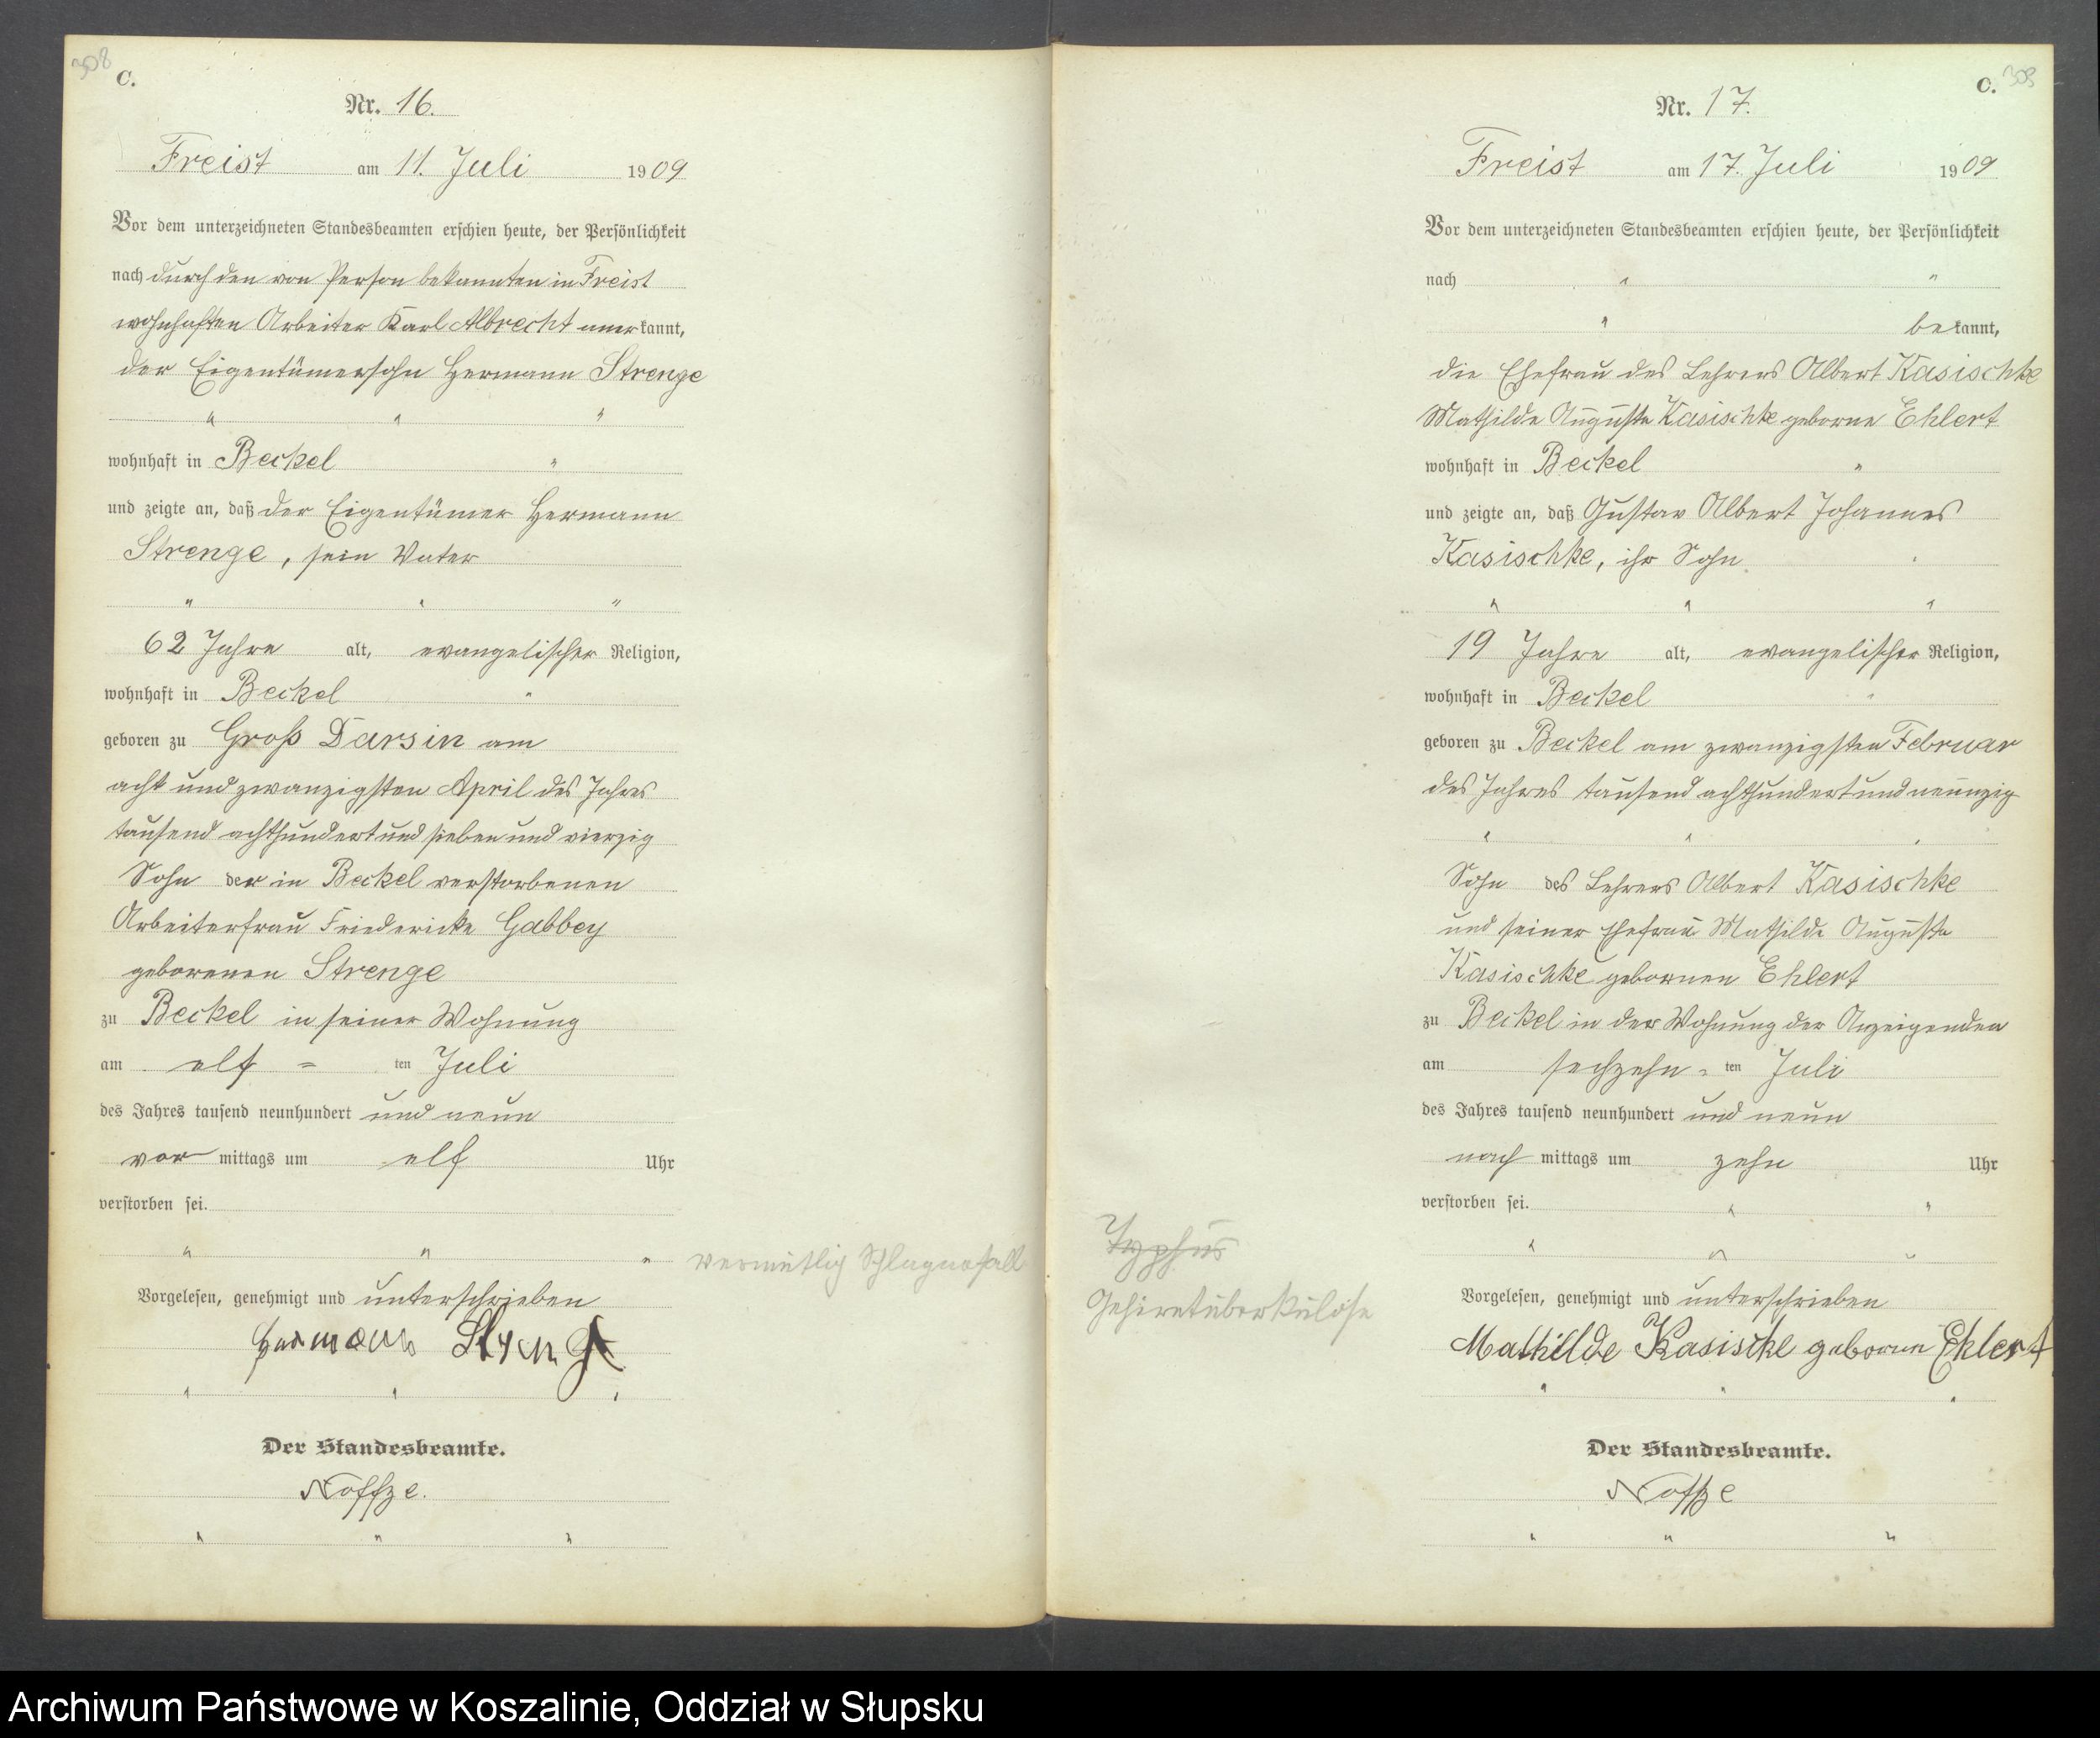 308
C.
Nr. 16.
Freist am 11. Juli 1909
Vor dem unterzeichneten Standesbeamten erschien heute, der Persönlichkeit
nach durch den von Person bekannten in Freist
wohnhaften Arbeiter Karl Albrecht anerkannt,
der Eigentümersohn Hermann Strenge
" " "
wohnhaft in Beckel "
und zeigte an, daß der Eigentümer Hermann
Strenge, sein Vater
" " "
62 Jahre alt, evangelischer Religion,
wohnhaft in Beckel "
geboren zu Groß Darsin am
acht und zwanzigsten April des Jahres
tausend achthundert und sieben und vierzig
Sohn der in Beckel verstorbenen
Arbeiterfrau Friedericke Gabbey
geborenen Strenge
zu Beckel in seiner Wohnung
am elf = ten Juli
des Jahres tausend neunhundert und neun
vor mittags um elf Uhr
verstorben sei.
" " "
vermutlich Schlaganfall
Vorgelesen, genehmigt und unterschrieben
Hermann Strenge
" " "
Der Standesbeamte.
Noffze.
" " "
C. 309
Nr. 17.
Freist am 17. Juli 1909
Vor dem unterzeichneten Standesbeamten erschien heute, der Persönlichkeit
nach " "
" bekannt,
die Ehefrau des Lehrers Albert Kasischke
Mathilde Auguste Kasischke geborne Ehlert
wohnhaft in Beckel "
und zeigte an, daß Gustav Albert Johannes
Kasischke, ihr Sohn
" " "
19 Jahre alt, evangelischer Religion,
wohnhaft in Beckel "
geboren zu Beckel am zwanzigsten Februar
des Jahres tausend achthundert und neunzig
" " "
Sohn des Lehrers Albert Kasischke
und seiner Ehefrau Mathilde Auguste
Kasischke gebornen Ehlert
zu Beckel in der Wohnung der Anzeigenden
am sechzehn = ten Juli
des Jahres tausend neunhundert und neun
nach mittags um zehn Uhr
verstorben sei. " "
" " "
Typhus
Gehirntuberkulose
Vorgelesen, genehmigt und unterschrieben
Mathilde Kasischke geborne Ehlert
" " "
Der Standesbeamte.
Noffze
" " "
Archiwum Państwowe w Koszalinie, Oddział w Słupsku